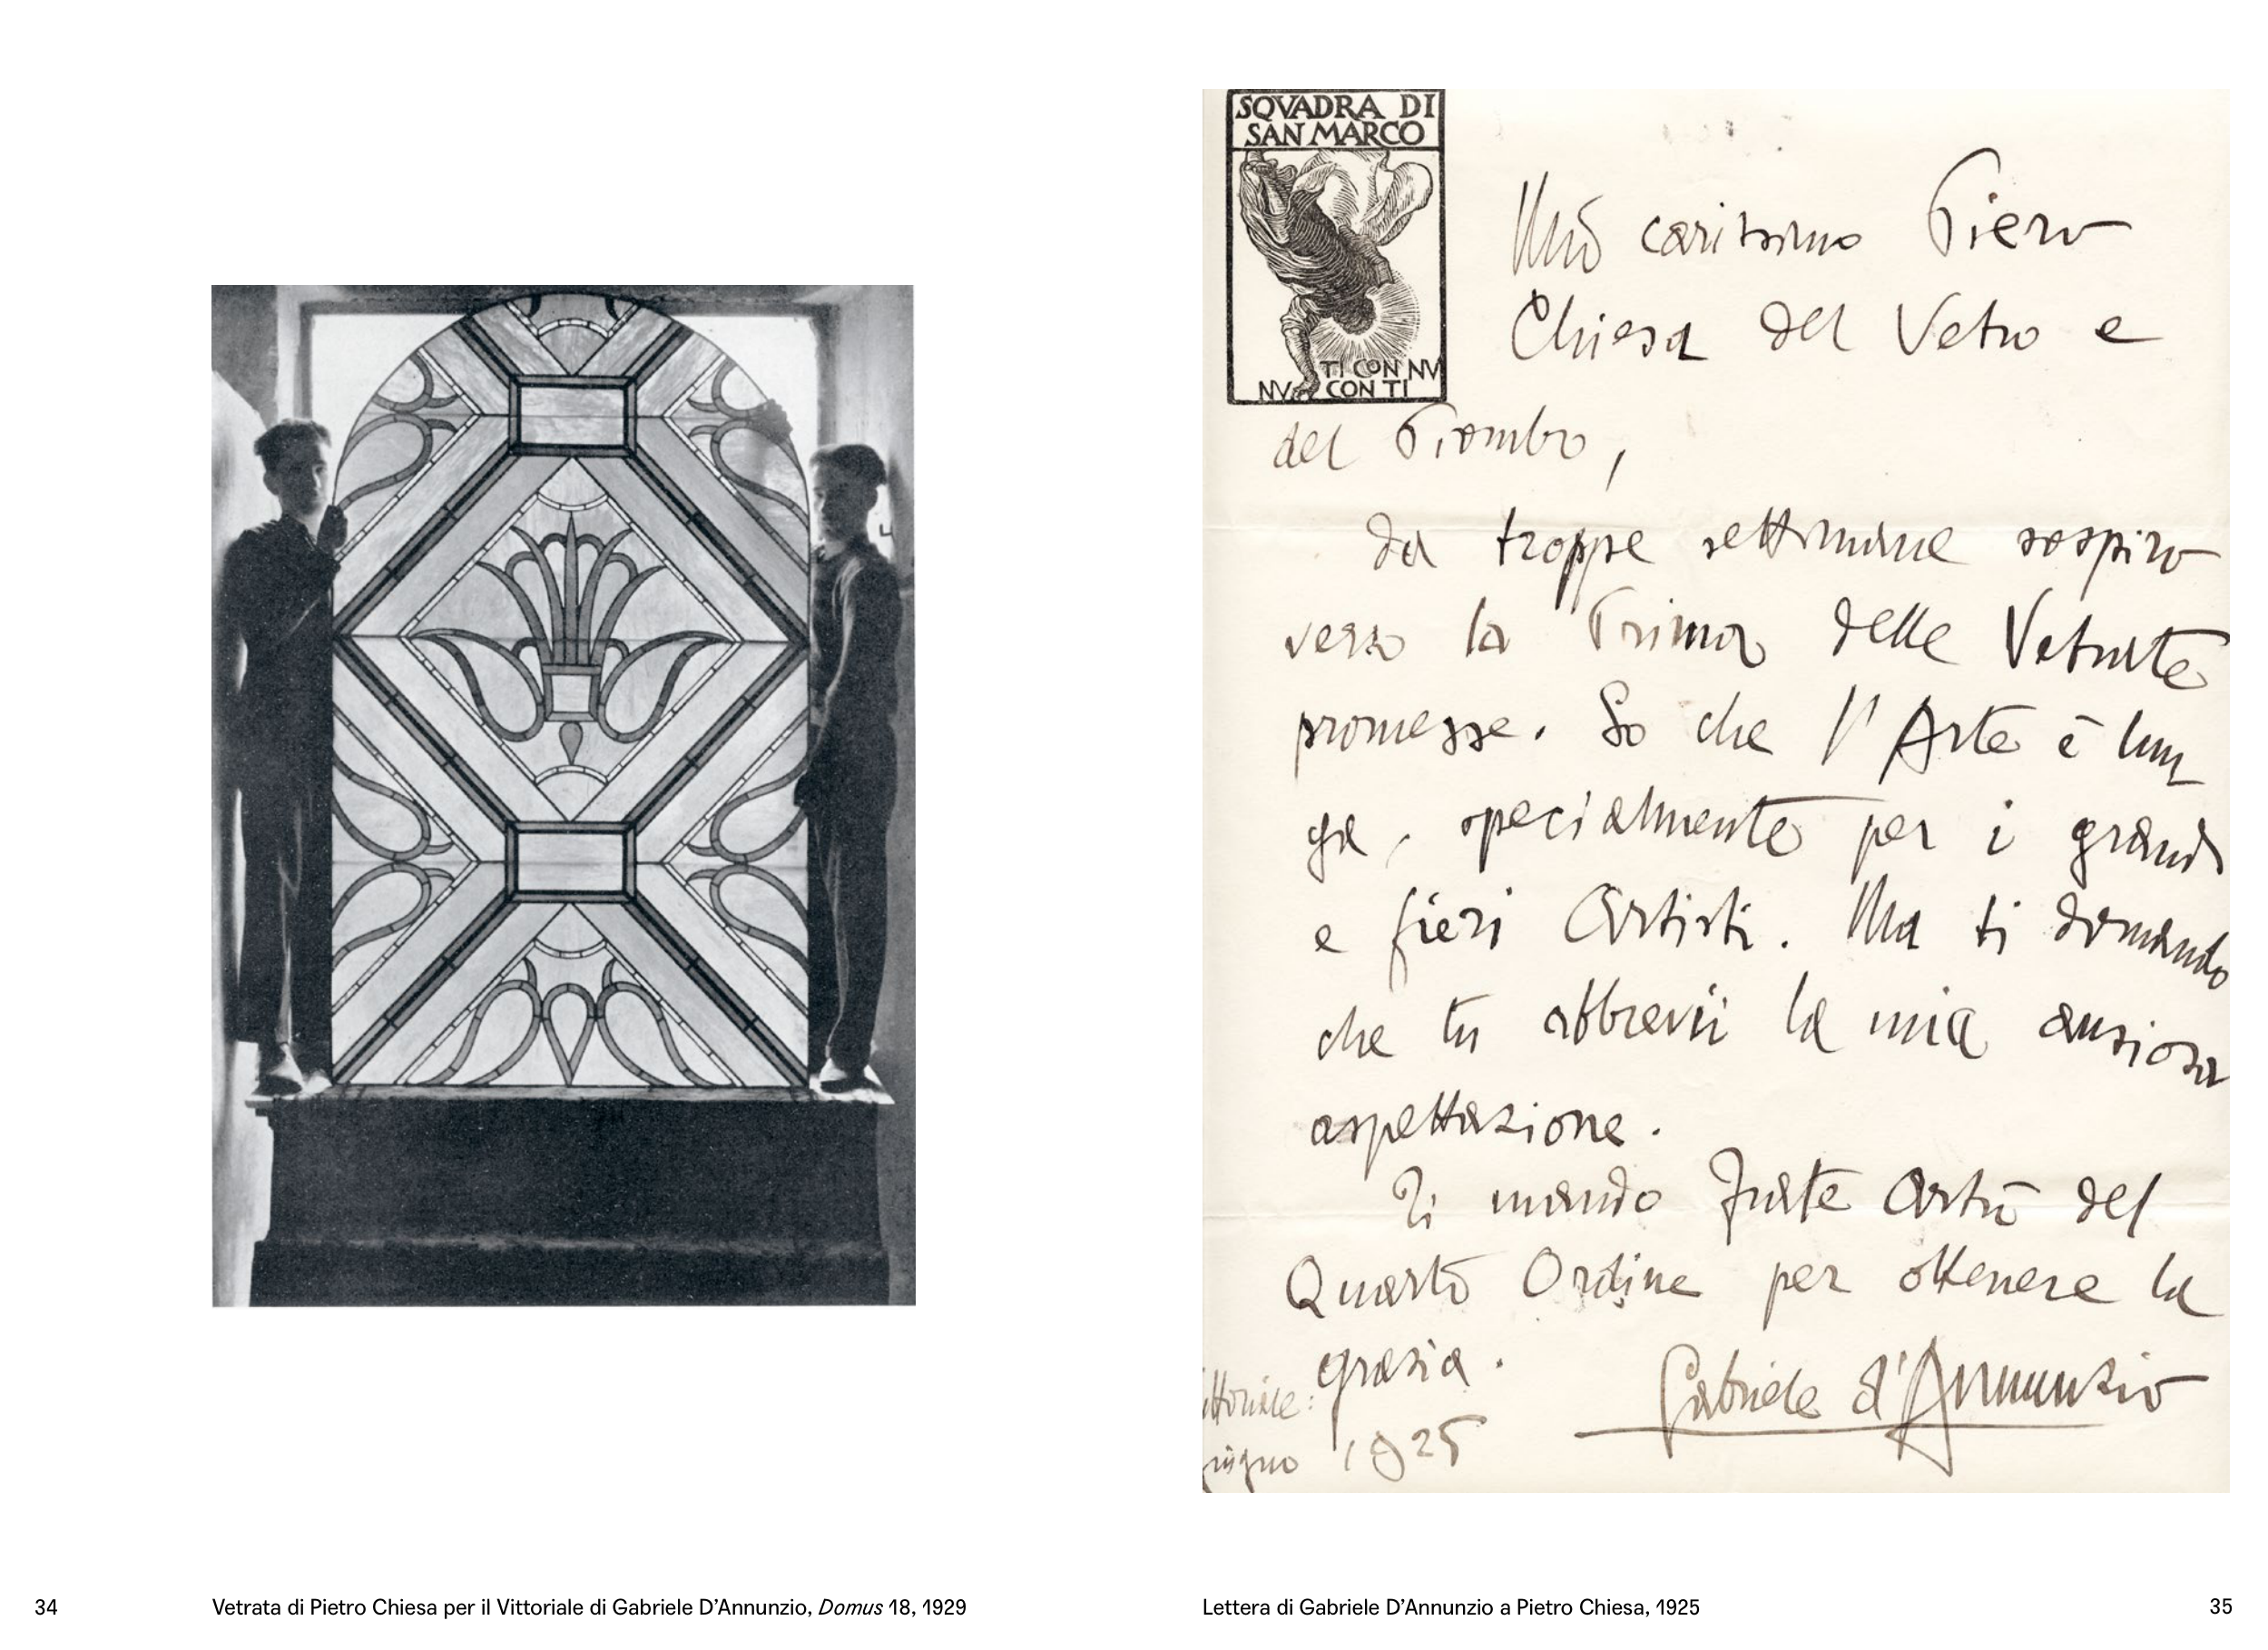 SQVADRA DI
SAN MARCO
TI CON NV
NV CON TI
Mio carissimo Piero
Chiesa del Vetro e
del Piombo,
da troppe settimane sospiro
verso la Prima delle Vetrate
promesse. So che l'Arte è lun
ga, specialmente per i grandi
e fieri Artisti. Ma ti domando
che tu abbrevii la mia ansiosa
aspettazione.
Ti mando frate Artù del
Quarto Ordine per ottenere la
grazia.
ittoriale:
giugno 1925
Gabriele d'Annunzio
34
Vetrata di Pietro Chiesa per il Vittoriale di Gabriele D'Annunzio, Domus 18, 1929
Lettera di Gabriele D'Annunzio a Pietro Chiesa, 1925
35